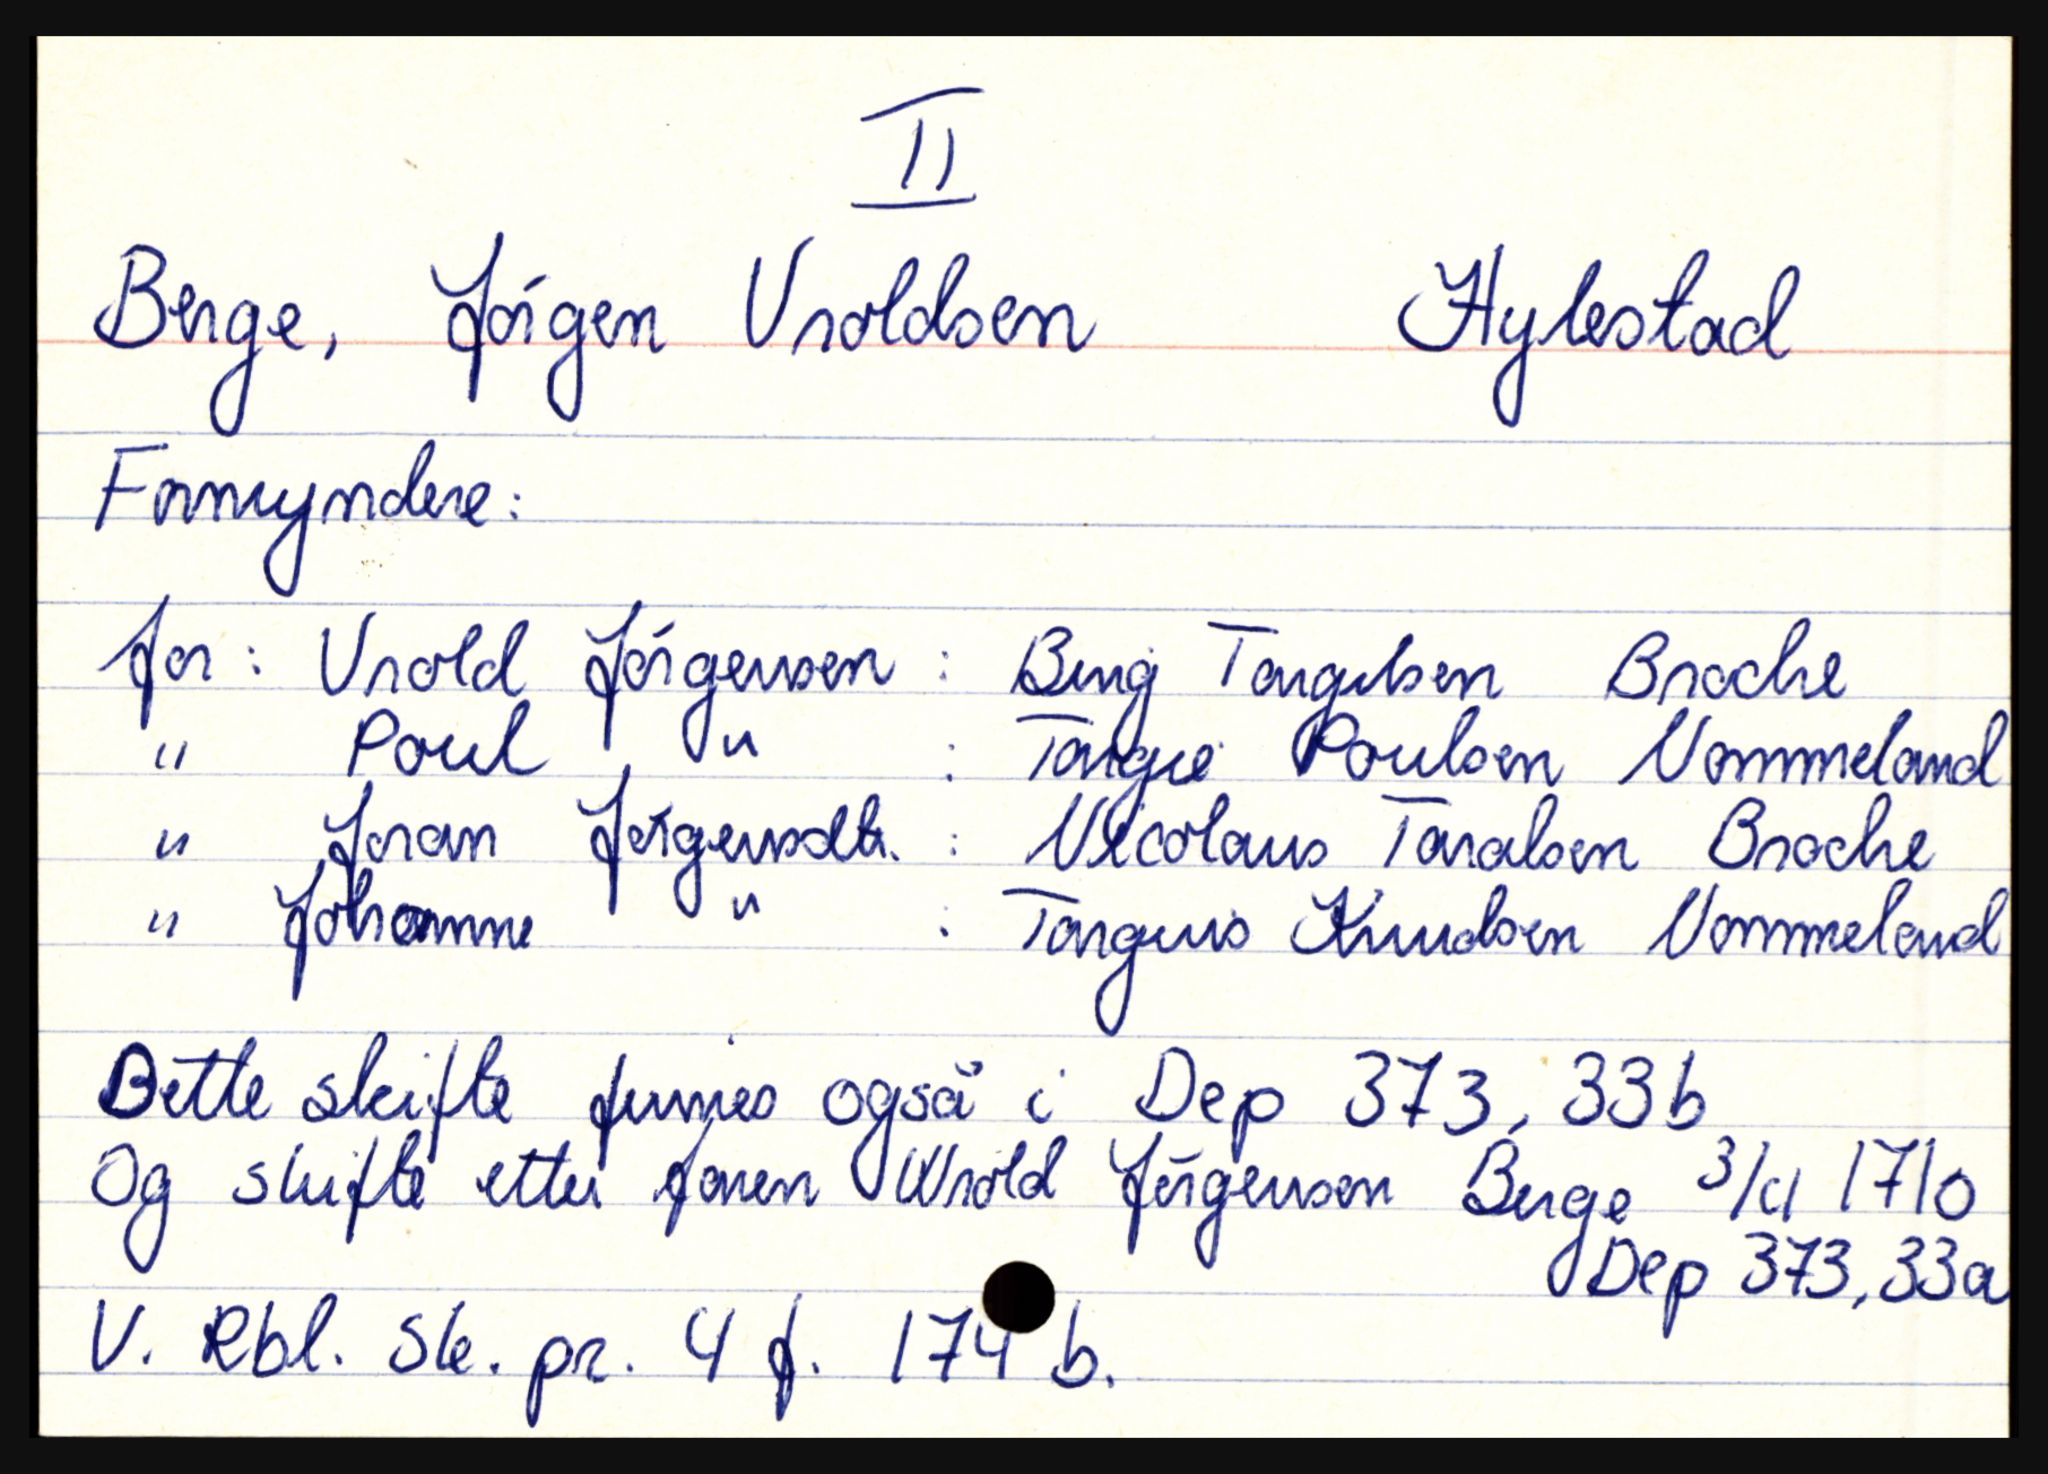 II
Berge, Jørgen Vroldsen Hylestad
Formyndere:
for: Vrold Jørgensen: Birig Torgilsen Brocke
" Poul " : Torgie Poulsen Nommeland
" Joran Jørgensdtr. : Nicolaus Taralsen Brocke
" Johanne " : Torguis Knudsen Nommeland
Dette skifte finnes også i Dep 373, 33b
Og skifte etter faren Wrold Jørgensen Berge 3/11 1710
Dep 373, 33a
V. Rbl. Sk. pr. 4 f. 174 b.